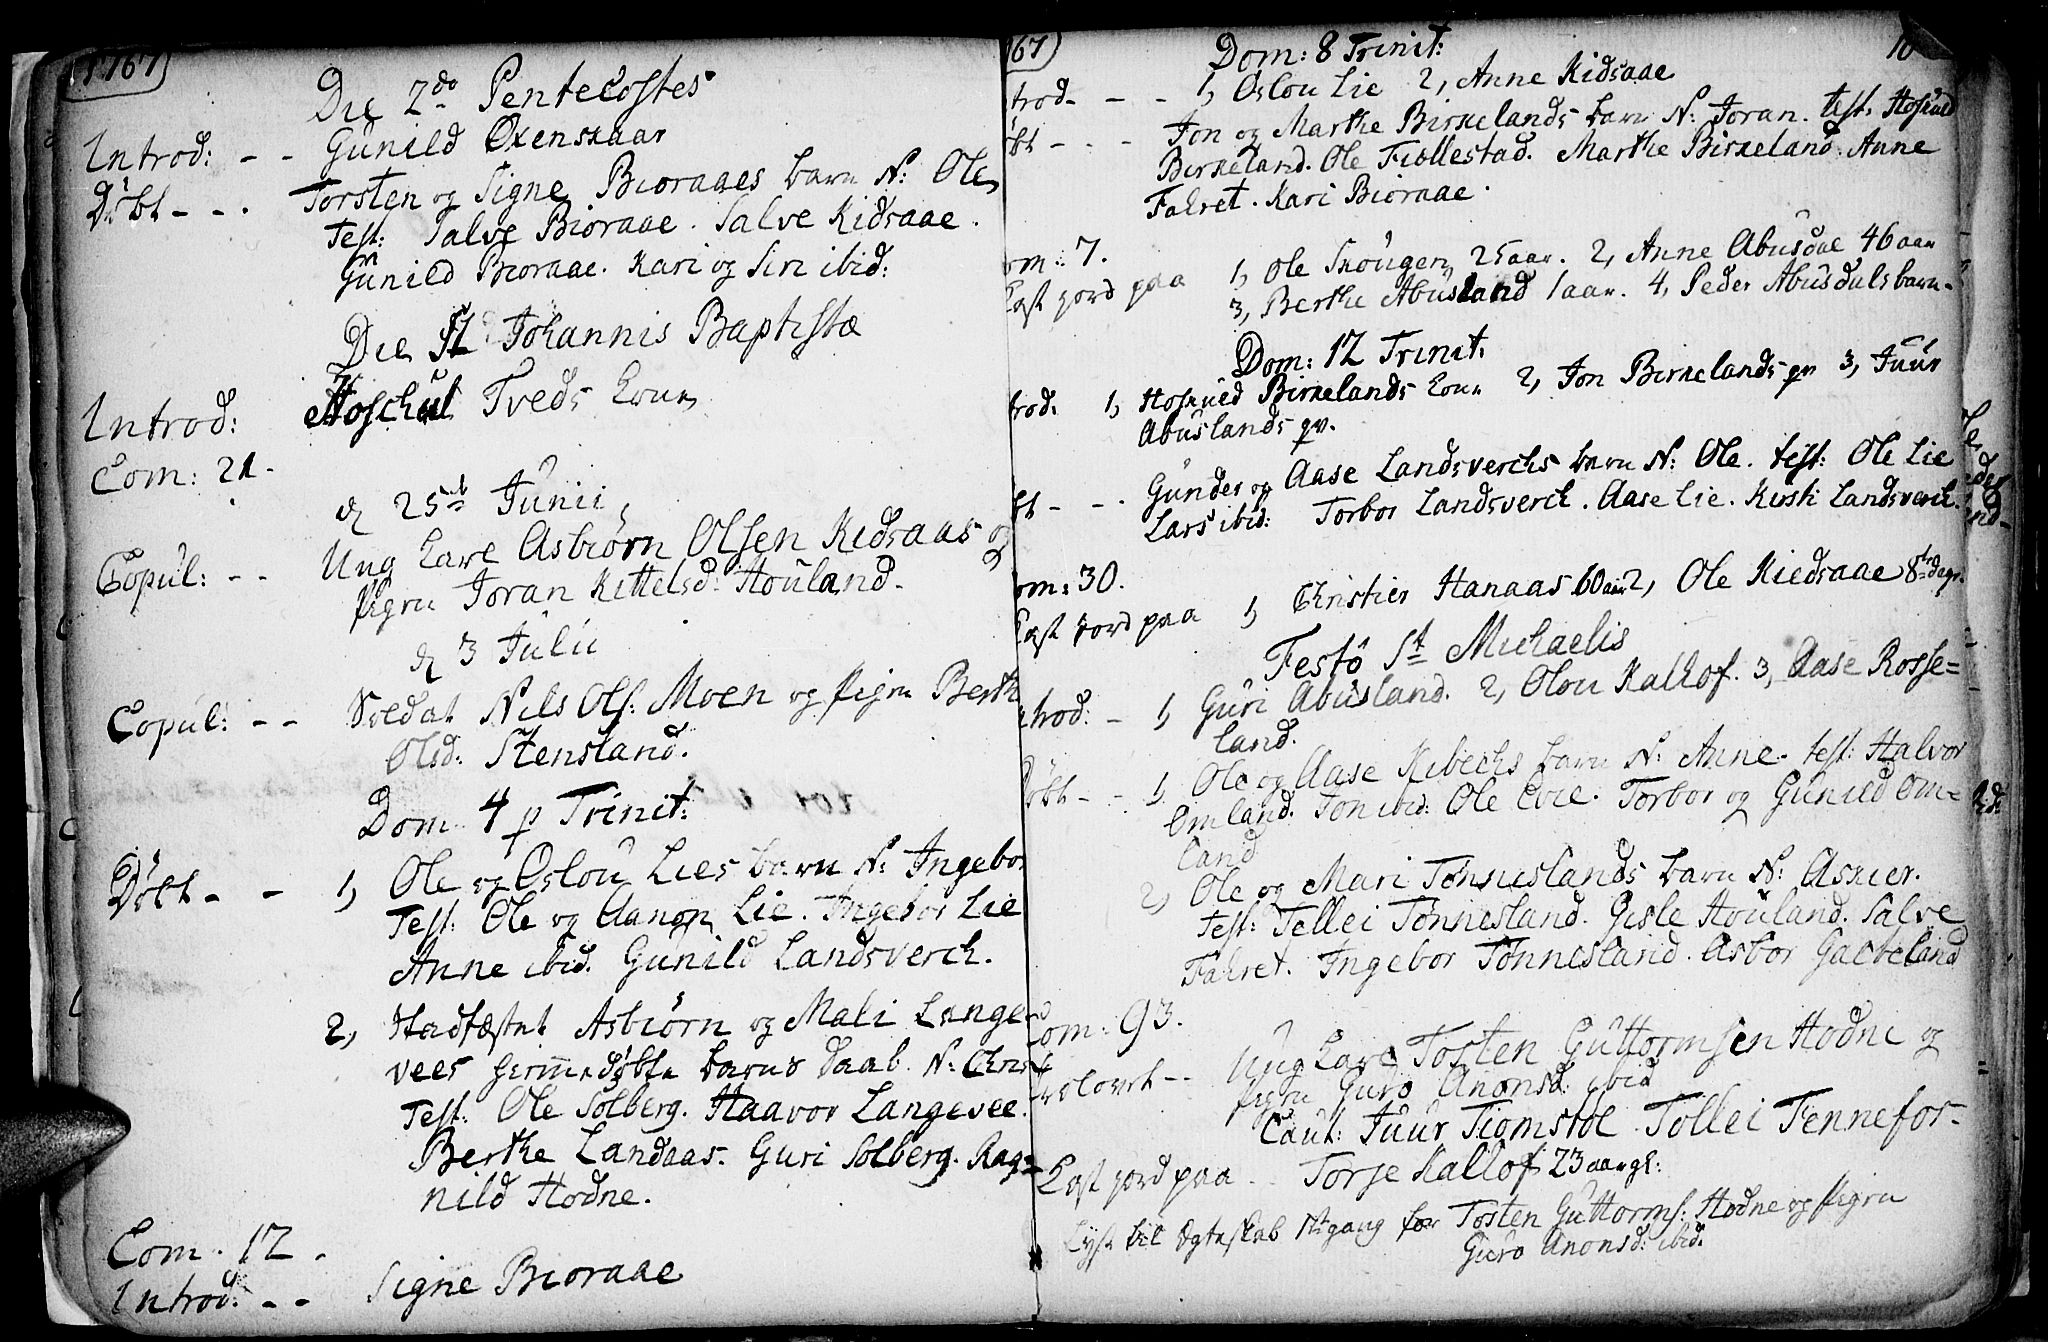 1767
Die 2do Pentecostes
Introd: - - Gunild Oxenskaar
Döbt - - . Torsten og Signe Bioraaes barn N: Ole
Test: Salve Bioraae. Salve Kidsaae.
Gunild Bioraae. Kari og Siri ibid:
Die St Johannis Baptistæ
Introd: Hoschul Tveds kone
Com: 21.
d 25de Junii
Copul: - - Ung karl Asbiörn Olsen Kidsaas og
pigen Joran Kittelsd: Houland.
d 3 Julii
Copul: - - Soldat Nils Ols: Moen og pigen Berth
Olsd: Stensland.
Dom 4 p Trinit:
Döbt - - 1, Ole og Oslou Lies barn N: Ingebor
Test: Ole og Aanon Lie. Ingebor Lie
Anne ibid. Gunild Landsverch.
2, Stadfæstet Asbiörn og Mali Lange
vees hiemmedöbte barns daab N: Chris
Test: Ole Solberg. Haavor Langevee.
Berthe Landaas. Guri Solberg. Rag=
nild Hodne.
Com. 12.
Introd: - - Signe Bioraae
67)
10
Dom: 8 Trinit:
trod - - - 1, Oslou Lie 2, Anne Kidsaae
öbt - - - Jon og Marthe Birkelands barn N: Joran. test: Hoskuld
Birkeland. Ole Fiöllestad. Marthe Birkeland. Anne
Falret. Kari Bioraae.
om: 7.
Cast jord paa 1, Ole Skougen 25 aar. 2, Anne Abusdal 46 aar
3, Berthe Abusland 1 aar. 4, Peder Abusdals barn.
Dom: 12 Trinit:
trod: 1, Hoskuld Birkelands kone 2, Jon Birkelands qv 3, Juur
Abuslands qv.
bt - - . Gunder og Aase Landsverchs barn N: Ole. test: Ole Lie
Lars ibid: Torbor Landsverch. Aase Lie. Kirsti Landsverch.
om: 30.
Cast jord paa 1, Christier Hanaas 60 aar 2, Ole Kiedsaae 8te dage
Festo St Michaelis
trod: - 1, Guri Abusland. 2, Olou Kallof. 3, Aase Rosse=
land.
öbt - - 1, Ole og Aase Ribechs barn N: Anne. test: Halvor
Omland. Jon ibid: Ole Evie. Torbor og Gunild Om=
land
2, Ole og Mari Tönneslands barn N: Askier.
test: Tellei Tönnesland. Gisle Houland. Salve
Falret. Ingebor Tönnesland. Asbor Gaebeland
Com: 93.
Trolovet - - Ung karl Tosten Guttormsen Hodne og
pigen Guro Anonsd: ibid
Caut: Juur Tiomstöl Tollei Fennefos.
Cast jord paa Torje Kallof 23 aar gl:
Lyst til Egteskab 1te gang for Tosten Guttorms: Hodne og pigen
Guro Anonsd: ibid.